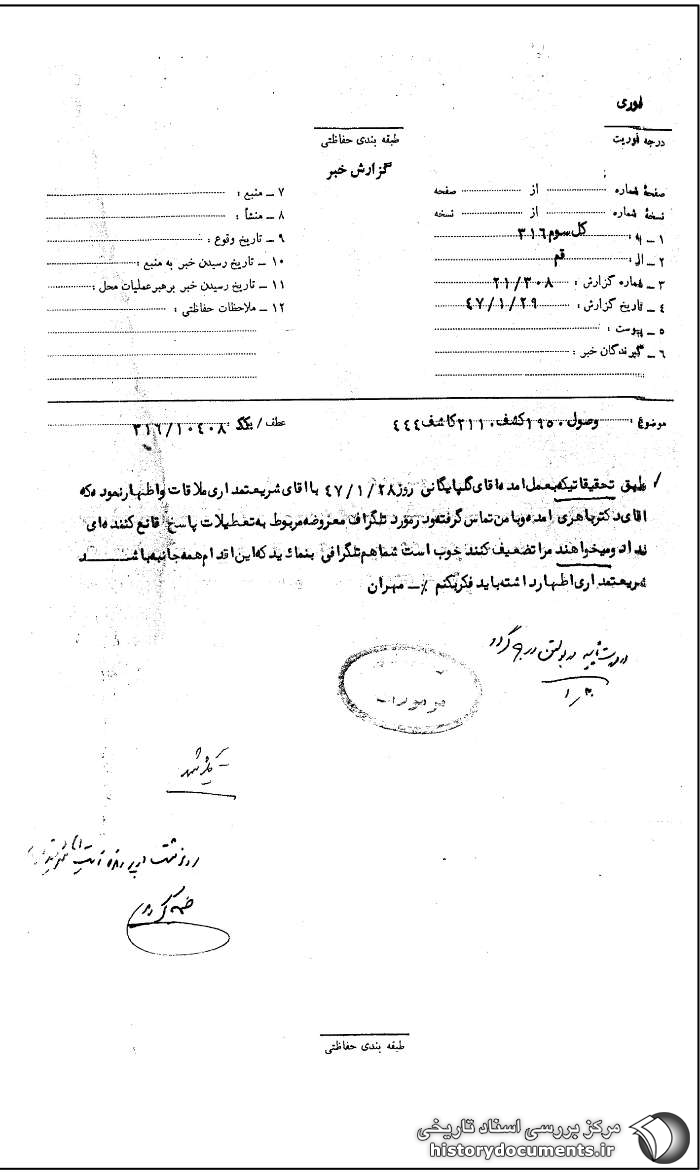 فوری
درجه فوریت
طبقه بندی حفاظتی
گزارش خبر
صفحهٔ شماره ........ از ........ صفحه
نسخهٔ شماره ........ از ........ نسخه
۱ ـ به : کل سوم ۳۱۶
۲ ـ از : قم
۳ ـ شماره گزارش : ۲۱/۳۰۸
۴ ـ تاریخ گزارش : ۴۷/۱/۲۹
۵ ـ پیوست :
۶ ـ گیرندگان خبر :
۷ ـ منبع :
۸ ـ منشأ :
۹ ـ تاریخ وقوع :
۱۰ ـ تاریخ رسیدن خبر به منبع :
۱۱ ـ تاریخ رسیدن خبر برهبر عملیات محل :
۱۲ ـ ملاحظات حفاظتی :
موضوع : وصول ۱۹۵۰ کشف ۲۱۱۰ کاشف ۴۴۴
عطف / پیرو : ۳۱۶/۱۰۴۰۸
طبق تحقیقاتیکه بعمل امده اقای گلپایگانی روز ۴۷/۱/۲۸ با اقای شریعتمداری ملاقات و اظهار نموده که
اقای دکتر باهری امده و با من تماس گرفته و در مورد تلگراف معروضه مربوط به تعطیلات پاسخ قانع کننده ای
نداد و میخواهند مرا تضعیف کنند خوب است شما هم تلگرافی بنمائید که این اقدام همه جانبه باشد
شریعتمداری اظهار داشته باید فکر بکنم ٪ ـ مهران
در بولتن درج گردد
طبقه بندی حفاظتی
مرکز بررسی اسناد تاریخی
historydocuments.ir